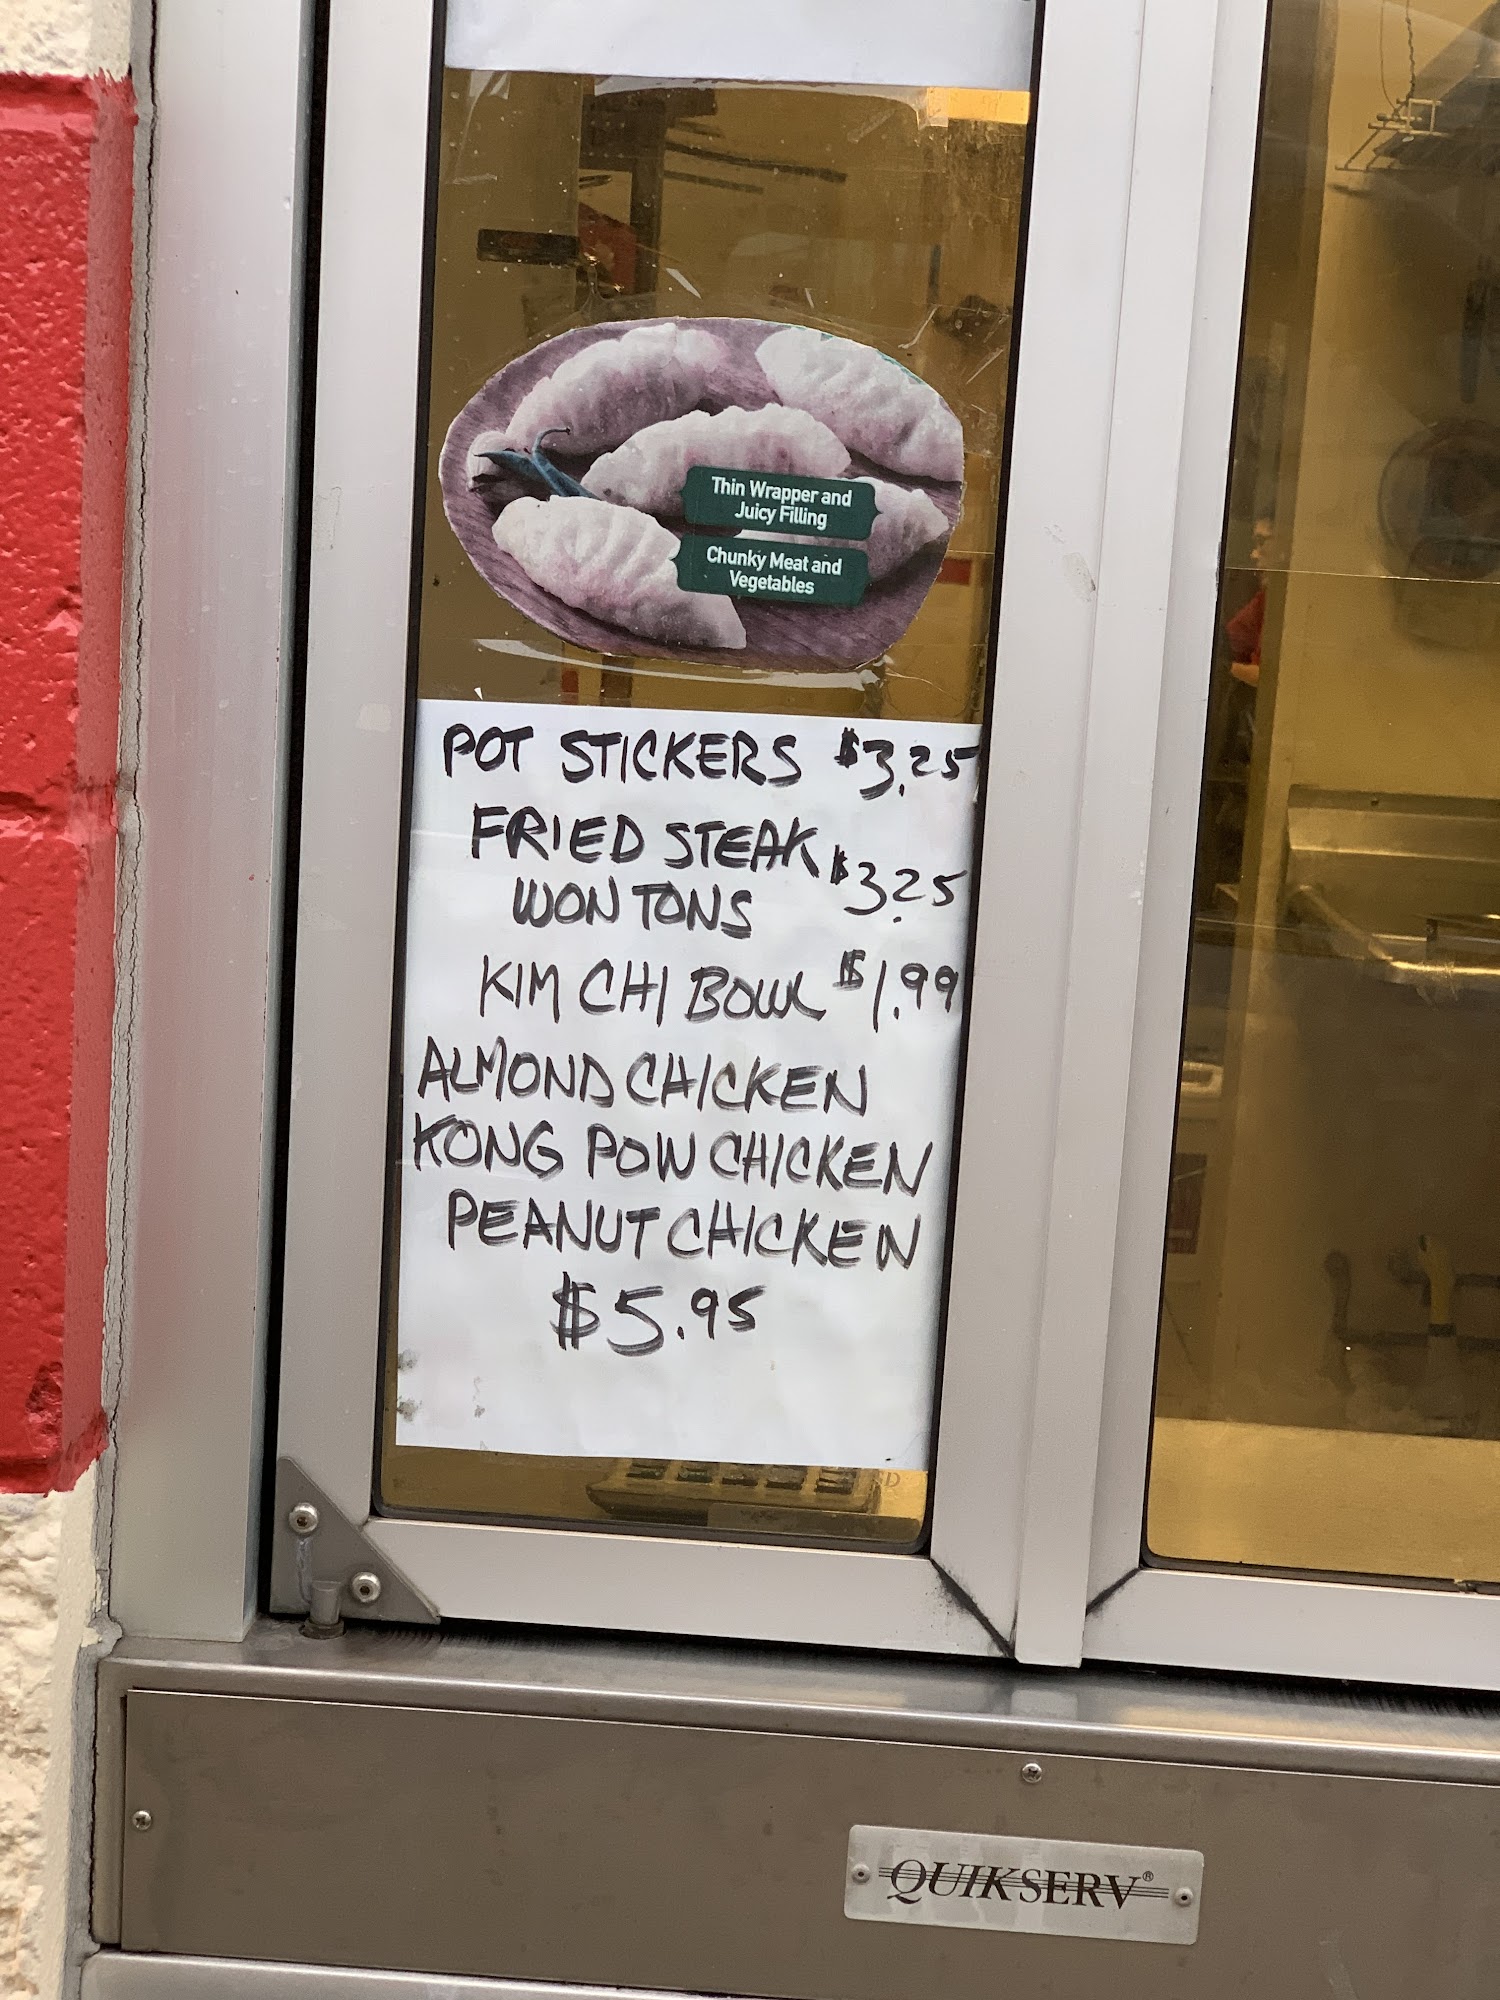 Thin Wrapper and
Juicy Filling
Chunky Meat and
Vegetables
POT STICKERS $3.25
FRIED STEAK
WON TONS $3.25
KIM CHI BOWL $1.99
ALMOND CHICKEN
KONG POW CHICKEN
PEANUT CHICKEN
$5.95
QUIKSERV®